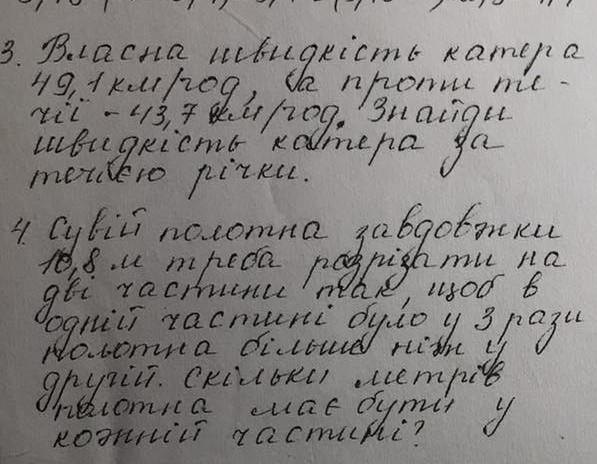 3. Власна швидкість катера
49,1 км/год, а проти те-
чії - 43,7 км/год. Знайди
швидкість катера за
течією річки.
4. Сувій полотна завдовжки
10,8 м треба розрізати на
дві частини так, щоб в
одній частині було у 3 рази
полотна більше ніж у
другій. Скільки метрів
полотна має бути у
кожній частині?